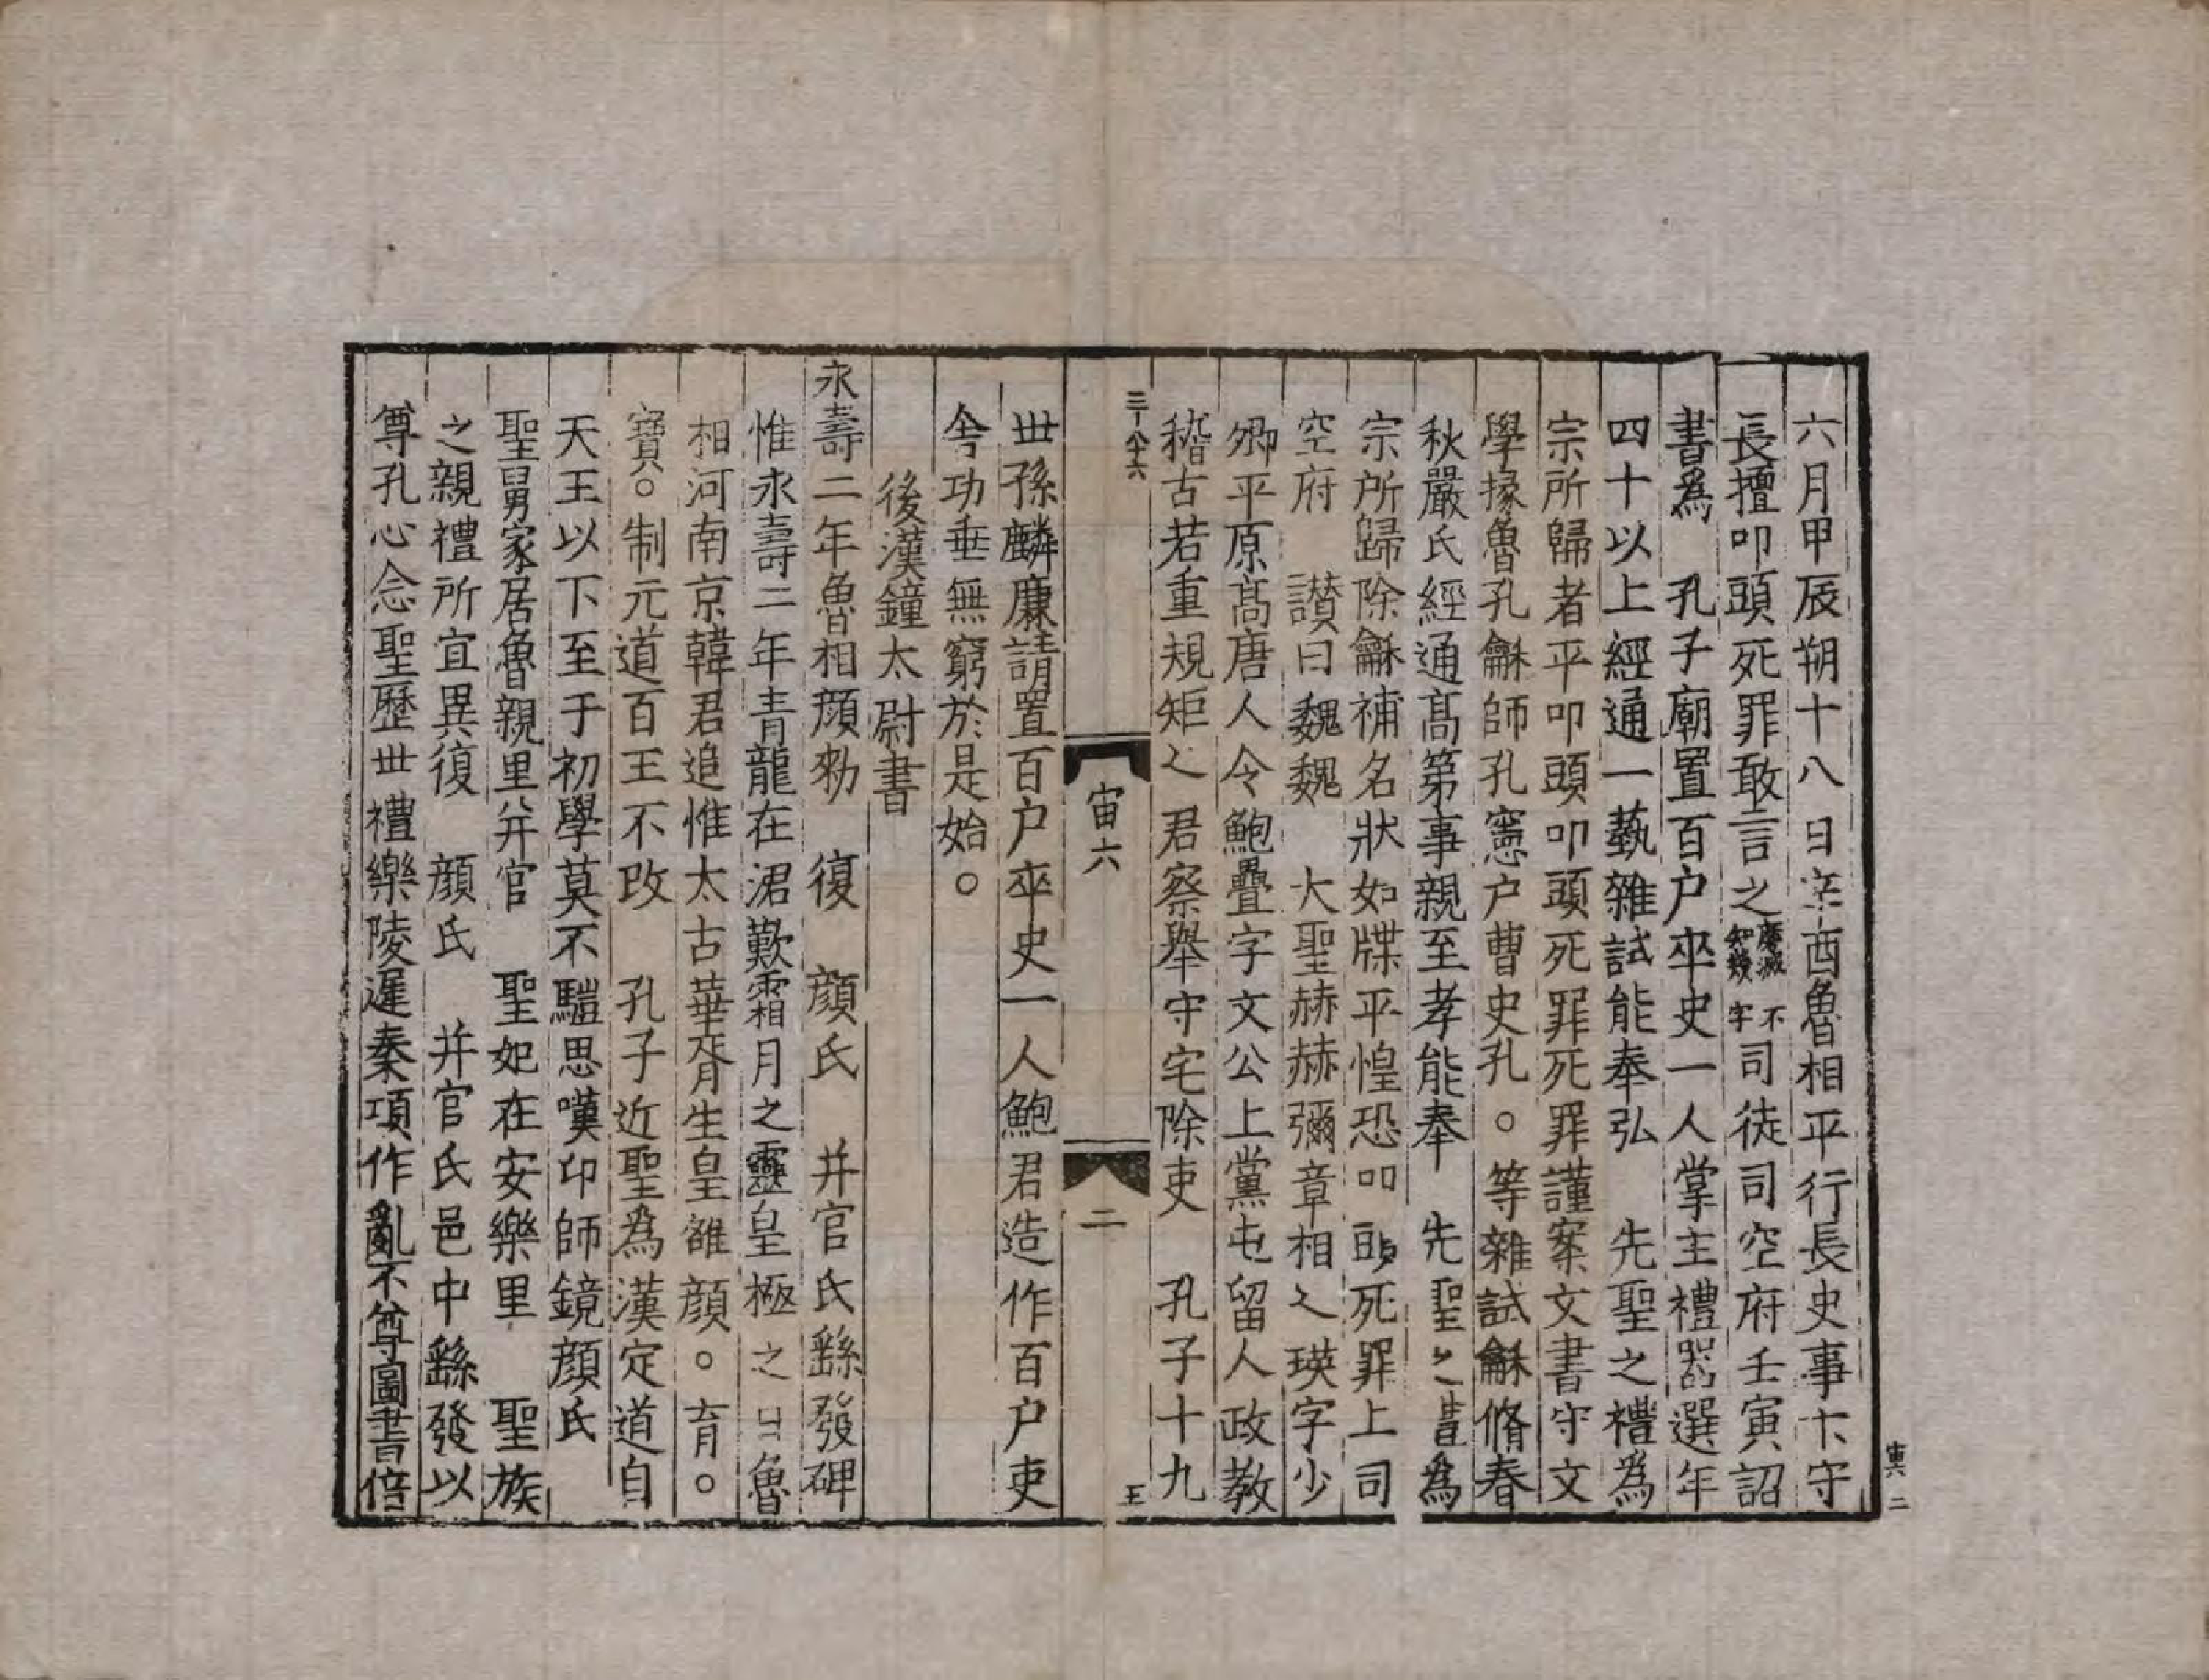 六月甲辰朔十八日辛酉魯相平行長史事卞守
長擅叩頭死罪敢言之磨滅不知幾字司徒司空府壬寅詔
書為　孔子廟置百户卒史一人掌主禮器選年
四十以上經通一藝雜試能奉弘　先聖之禮為
宗所歸者平叩頭叩頭死罪死罪謹案文書守文
學掾魯孔龢師孔憲户曹史孔。等雜試龢脩春
秋嚴氏經通高第事親至孝能奉　先聖之禮為
宗所歸除龢補名狀如牒平惶恐叩頭死罪上司
空府　讃曰魏魏　大聖赫赫彌章相乀瑛字少
卿平原高唐人令鮑疊字文公上黨屯留人政教
稽古若重規矩乀君察舉守宅除吏　孔子十九
三百八十六
宙六
二
王
世孫麟廉請置百户卒史一人鮑君造作百户吏
舎功垂無窮於是始。
後漢鐘太尉書
永壽二年魯相顔勑　復　顔氏　并官氏繇發碑
惟永壽二年青龍在涒歎霜月之靈皇極之日魯
相河南京韓君追惟太古華胥生皇雄顔。育。
寶。制元道百王不改　孔子近聖為漢定道自
天王以下至于初學莫不騹思嘆卬師鏡顔氏
聖舅家居魯親里并官　聖妃在安樂里　聖族
之親禮所宜異復　顔氏　并官氏邑中繇發以
尊孔心念聖歷世禮樂陵遲秦項作亂不尊圖書倍
宙六　二